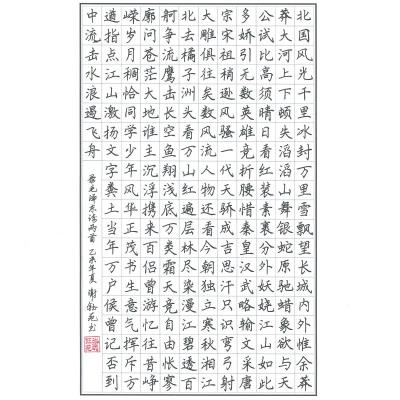 北国风光千里冰封万里雪飘望长城内外惟余莽
莽大河上下顿失滔滔山舞银蛇原驰蜡象欲与天
公试比高须晴日看红装素裹分外妖娆江山如此
多娇引无数英雄竞折腰惜秦皇汉武略输文采唐
宗宋祖稍逊风骚一代天骄成吉思汗只识弯弓射
大雕俱往矣数风流人物还看今朝独立寒秋湘江
北去橘子洲头看万山红遍层林尽染漫江碧透百
舸争流鹰击长空鱼翔浅底万类霜天竞自由怅寥
廓问苍茫大地谁主沉浮携来百侣曾游忆往昔峥
嵘岁月稠恰同学少年风华正茂书生意气挥斥方
遒指点江山激扬文字粪土当年万户侯曾记否到
中流击水浪遏飞舟
毛泽东诗两首 乙未年夏 谢 书